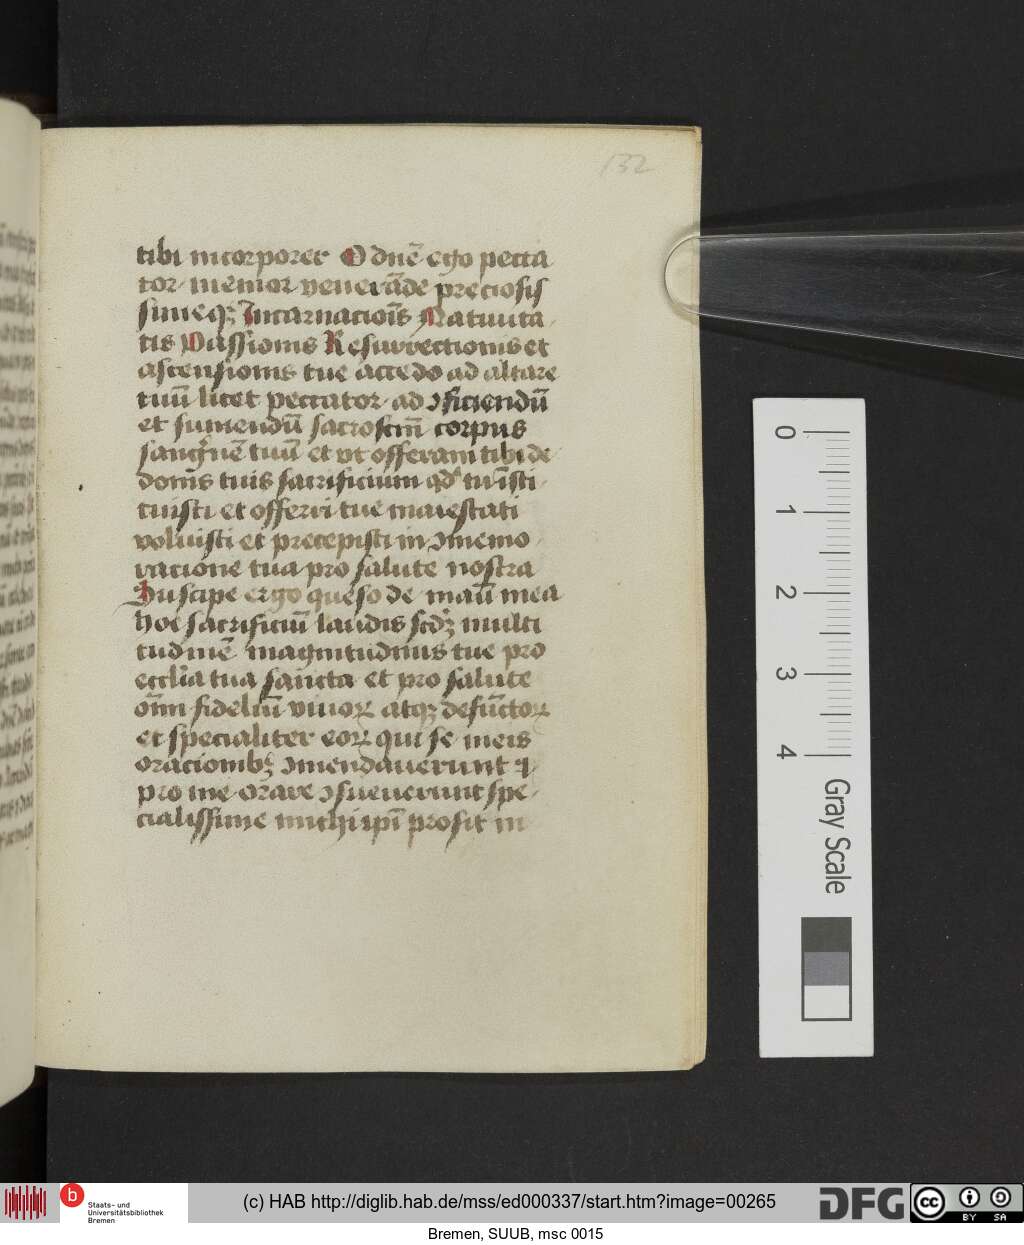 132
tibi incorporer O dnē ego pecca
tor memor venerāde preciosis
simeqꝫ Incarnacioīs Natiuita
tis Passionis Resurrectionis et
ascensionis tue accedo ad altare
tuū licet peccator ad ꝯficiendū
et sumendū sacrosctm̄ corpus
sanguīnē tuū et vt offeram tibi de
donis tuis sacrificium qd tu īsti
tuisti et offerri tue maiestati
voluisti et precepisti in ꝯmemo
racione tua pro salute nostra
Suscipe ergo queso de manū mea
hoc sacrificiū laudis scdꝫ multi
tudinē magnitudinis tue pro
eccl̄ia tua sancta et pro salute
om̄i fidelīu viuoꝝ atqꝫ defūctoꝝ
et specialiter eoꝝ qui se meis
oracionibꝫ ꝯmendauerunt ⁊
pro me orare ꝯsueuerunt spe
cialissime michi ipī prosit in
0
1
2
3
4
Gray Scale
b Staats- und
Universitätsbibliothek
Bremen
(c) HAB http://diglib.hab.de/mss/ed000337/start.htm?image=00265
DFG
cc BY SA
Bremen, SUUB, msc 0015